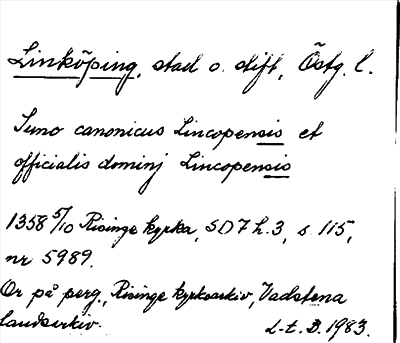 Linköping, stad o. stift, Östg. l.
Suno canonicus Lincopensis et
officialis dominj Lincopensis
1358 5/10 Risinge kyrka, SD 7 h. 3, s. 115,
nr 5989.
Or på perg., Risinge kyrkoarkiv, Vadstena
landsarkiv. L-t. B. 1983.